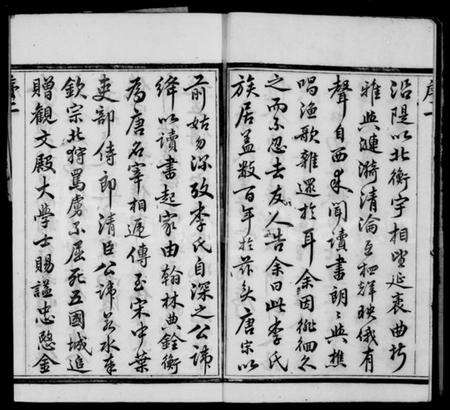 序一
沿隄以北衡宇相望延袤曲折
雅與漣漪清淪互相輝映俄有
聲自西來聞讀書朗朗與樵
唱漁歌雜還於耳余因徘徊久
之而不忍去友人告余曰此李氏
族居蓋數百年於茲矣唐宗以
前姑勿深攷李氏自深之公諱
絳以讀書起家由翰林典銓衡
為唐名宰相遞傳至宋中葉
吏部侍郎清臣公諱若水奉
欽宗北狩罵虜不屈死五國城追
贈觀文殿大學士賜謚忠愍金
序二